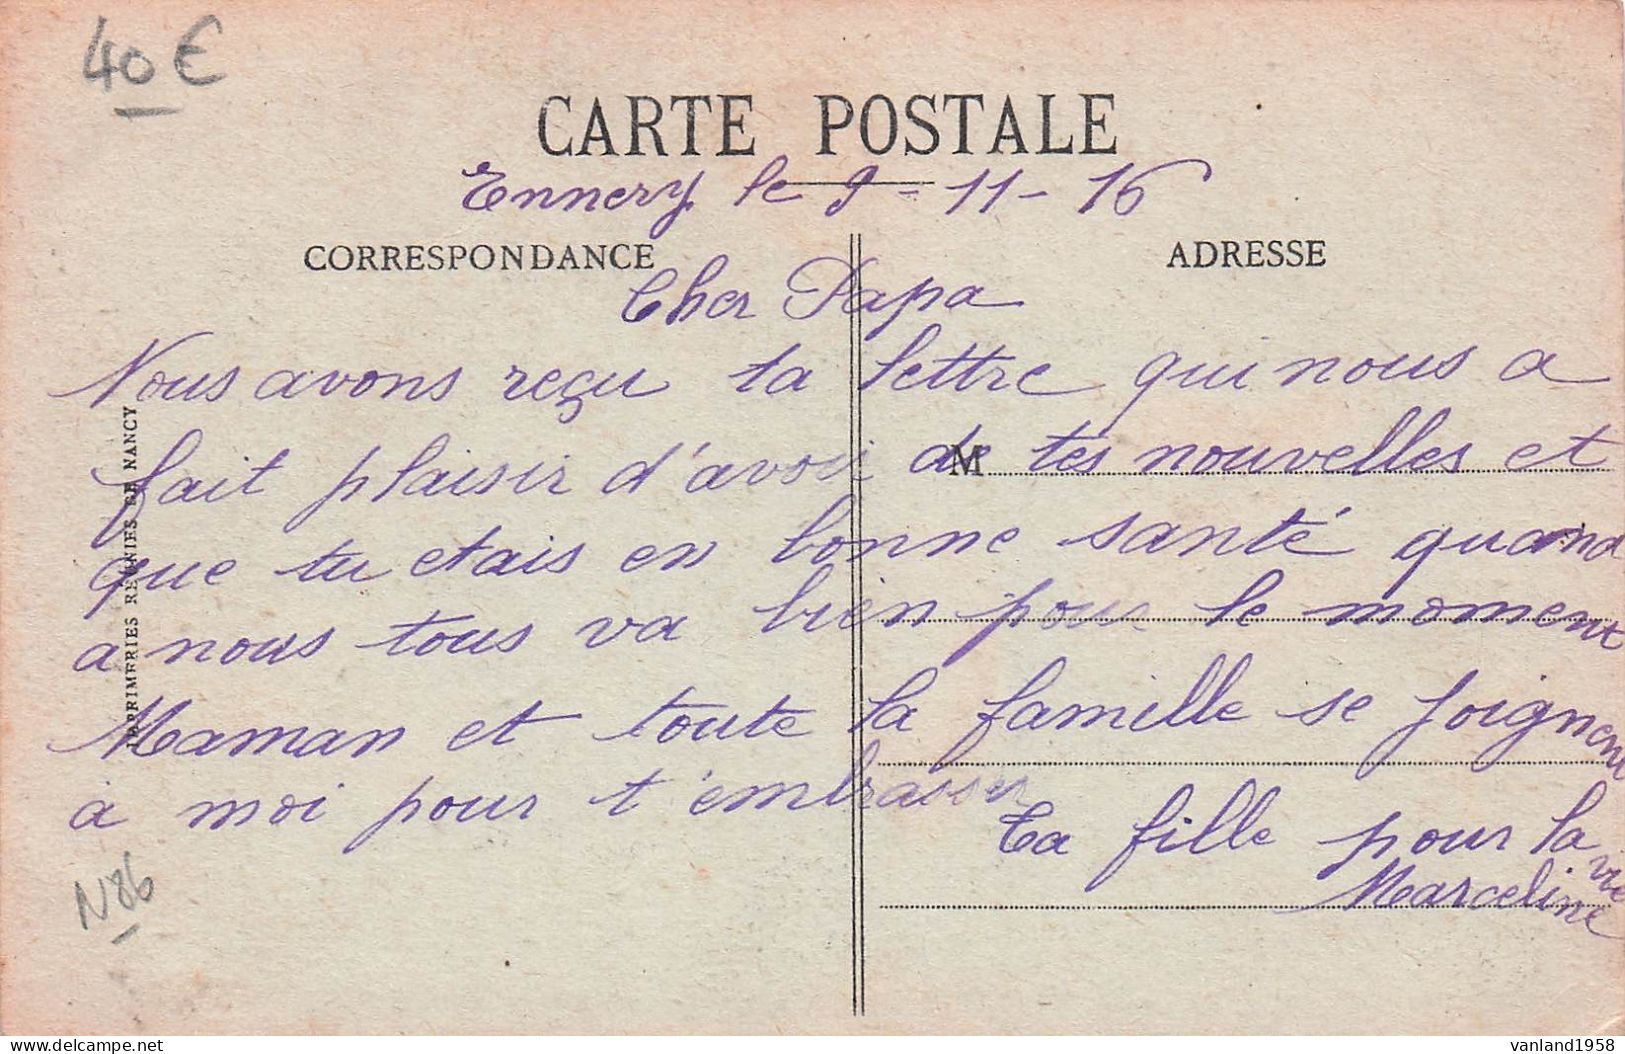 40 €
CARTE POSTALE
Ennery le 9-11-16
CORRESPONDANCE
ADRESSE
Cher Papa
Nous avons reçu ta lettre qui nous a
fait plaisir d'avoir de tes nouvelles et
M
que tu etais en bonne santé quand
a nous tous va bien pour le moment
Maman et toute la famille se joignent
à moi pour t'embrasser
Ta fille pour la vie
Marceline
N86
IMPRIMERIES REUNIES DE NANCY
delcampe.net
vanland1958